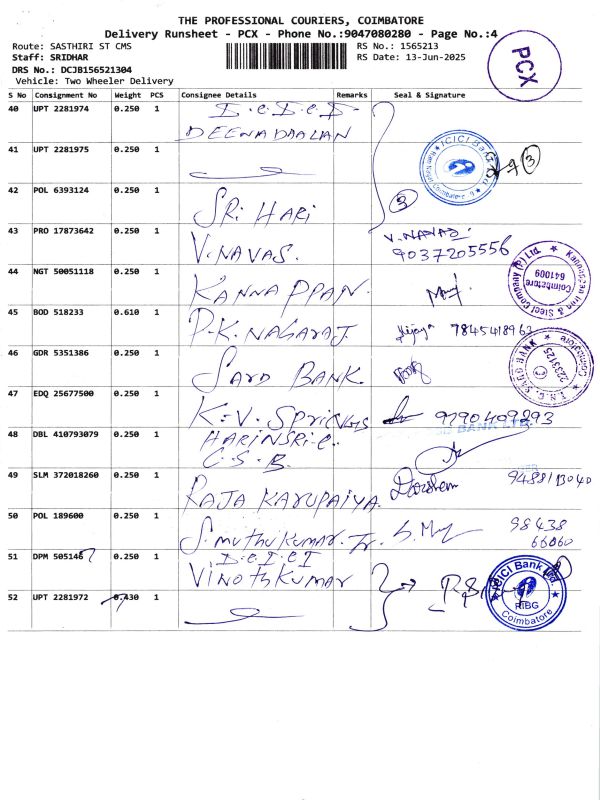 THE PROFESSIONAL COURIERS, COIMBATORE
Delivery Runsheet - PCX - Phone No.:9047080280 - Page No.:4
Route: SASTHIRI ST CMS
RS No.: 1565213
Staff: SRIDHAR
RS Date: 13-Jun-2025
DRS No.: DCJB156521304
Vehicle: Two Wheeler Delivery
PCX
S No Consignment No Weight PCS Consignee Details Remarks Seal & Signature
40 UPT 2281974 0.250 1 I.C.I.C.I
DEENADAALAN
41 UPT 2281975 0.250 1
ICICI Bank
3
42 POL 6393124 0.250 1 SRI HARI
3
43 PRO 17873642 0.250 1 V.NAVAS. V.NAVAS.
9037205556
44 NGT 50051118 0.250 1 KANNAPPAN.
Kannappan Iron & Steel Company (P) Ltd.
Coimbatore
641009
45 BOD 518233 0.610 1 P.K.NAGARAJ. Vijaya 7845418963
46 GDR 5351386 0.250 1 SARD BANK.
2233125
47 EDQ 25677500 0.250 1 K.V. SPRINGS 9790409293
BANK LTD.
48 DBL 410793079 0.250 1 HARINSRI.C.
C.S.B.
49 SLM 372018260 0.250 1 RAJA KARUPAIYA Darshem
50 POL 189600 0.250 1 S.muthukumar. 98438
66060
51 DPM 505146 0.250 1 I.C.I.C.I
VINOTHKUMAR
52 UPT 2281972 0.430 1
ICICI Bank Ltd.
RIBG
Coimbatore